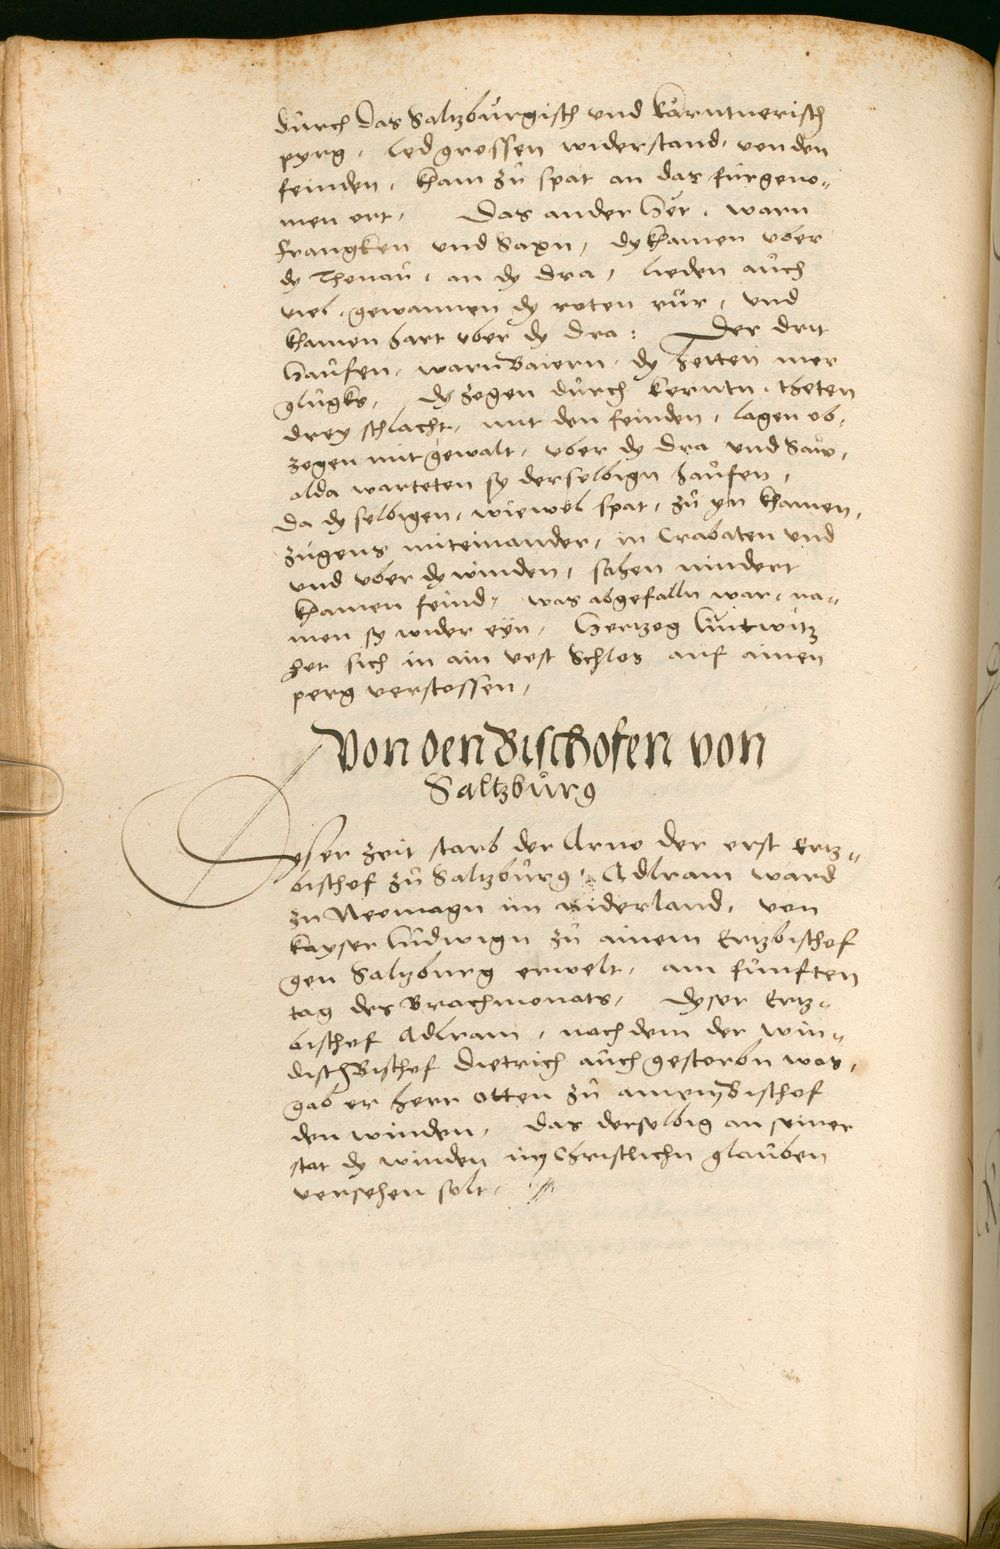 durch das Saltzburgisch und kärntnerisch
pyrg, led grossen widerstand, von den
feinden, kham zů spat an das fürgeno=
men ort, Das ander Her, warn
franngken und Saxn, dy khamen vber
dy Thonaů, an dy dra, lieden aůch
viel, gewannen dy roten rür, und
khamen hart vber dy dra: Der drit
Haůfen, warn Baiern, dy hetten mer
glůgks, dy zogen důrch kerntn, theten
drey schlacht, mit den feinden, lagen ob,
zogen mit gewalt, vber dy dra und Saw,
alda warteten sy derselbign haůfen,
Da dy selbigen, wiewol spat, zů yn khamen,
zugens miteinander, in Crabaten und
und vber dy winden, sahen nindert
khainen feind, was abgefalln war, na=
men sy wider eyn, Hertzog Luitwitz
het sich in ain vest Schlos auf ainen
perg verstossen,
Von den Bischofen von
Saltzbůrg
Dyser zeit starb der Arno der erst Ertz=
bischof zů Saltzbůrg, Adlram ward
zu Neomagn im niderland, von
kayser Lůdwign zů ainem Ertzbischof
gen Saltzburg erwelt, am fůnften
tag des Brachmonats, dyser Ertz=
bischof Adlram, nach dem der Win=
disch Bischof Dietrich aůch gestorbn was,
gab er herr Otten zů ainem Bischof
den winden, das derselbig an seiner
stat dy winden im Christlichn glaůben
versehen solt,